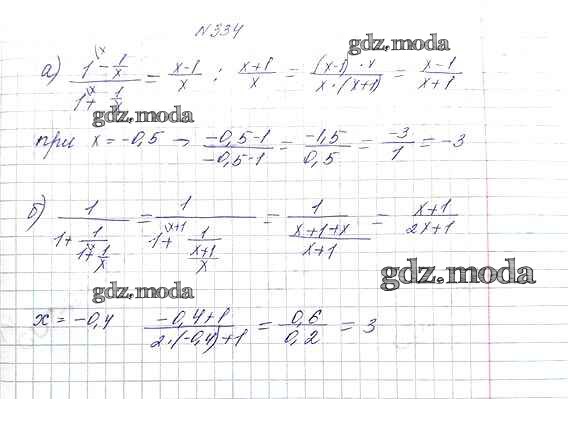 N 334
gdz.moda
а) (1 - 1/x)/(1 + 1/x) = (x-1)/x : (x+1)/x = ((x-1)·x)/(x·(x+1)) = (x-1)/(x+1)
gdz.moda
при x = -0,5 → (-0,5-1)/(-0,5-1) = (-1,5)/(0,5) = (-3)/1 = -3
б) 1/(1 + 1/(1 + 1/x)) = 1/(1 + 1/((x+1)/x)) = 1/((x+1+x)/(x+1)) = (x+1)/(2x+1)
gdz.moda
gdz.moda
x = -0,4 (-0,4+1)/(2·(-0,4)+1) = 0,6/0,2 = 3